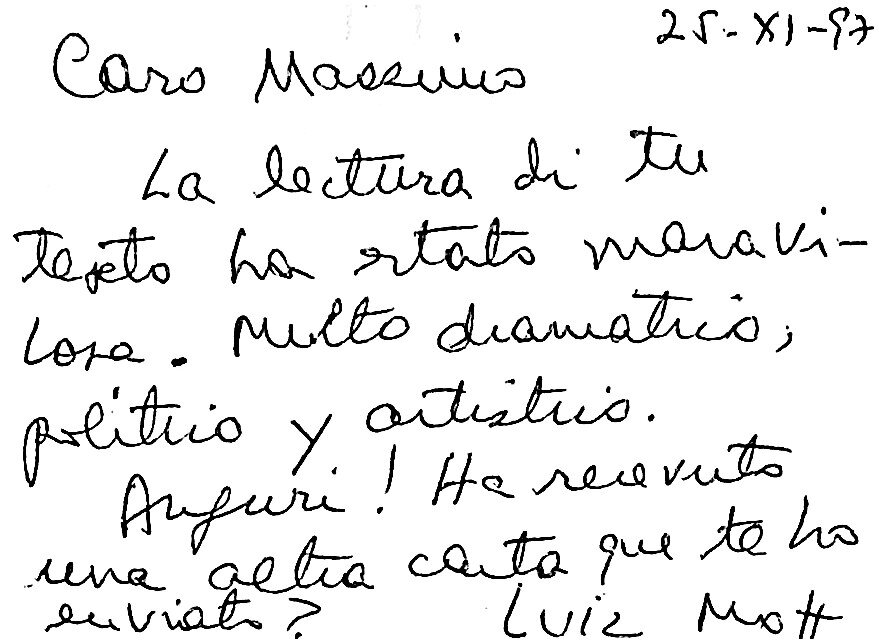 25-XI-97
Caro Massimo
La lectura di tu
texto ha stato maravi-
losa. Multo dramatico,
político y artistico.
Auguri! Ha recevuto
una altra carta que te ho
enviato? Luiz Mott